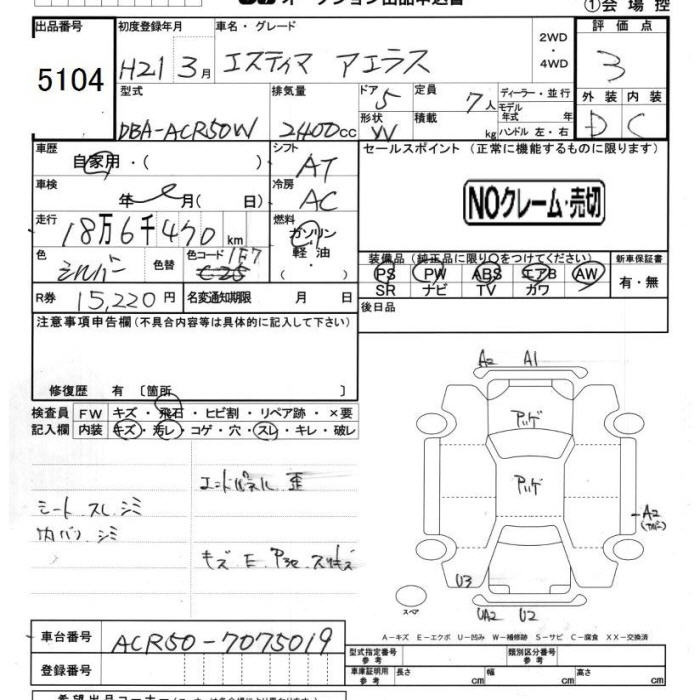 オークション出品申込書
①会場控
出品番号 初度登録年月 車名・グレード 2WD・4WD 評価点
5104 H21 3月 エスティマ アエラス 3
型式 排気量 ドア 5 定員 7人 ディーラー・並行
モデル年式 年 外装 内装
DBA-ACR50W 2400cc 形状 W 積載 kg ハンドル 左・右 D C
車歴 自家用・( ) シフト AT セールスポイント (正常に機能するものに限ります)
車検 年 月( 日) 冷房 AC NOクレーム・売切
走行 18万6千470km 燃料 ガソリン・軽油・
色 シルバー 色替 色コード 1F7 装備品(純正品に限り○をつけてください) 新車保証書
PS PW ABS エアB AW 有・無
SR ナビ TV カワ
R券 15,220円 名変通知期限 月 日 後日品
注意事項申告欄(不具合内容等は具体的に記入して下さい)
修復歴 有 〔箇所 〕
検査員 FW キズ・飛石・ヒビ割・リペア跡・×要
記入欄 内装 キズ・汚レ・コゲ・穴・スレ・キレ・破レ
エンドパネル 歪
シート スレ シミ
キズ E
A2 A1
アッゲ
アッゲ
A2
U3
UA2 U2
スペア
A-キズ E-エクボ U-凹み W-補修跡 S-サビ C-腐食 XX-交換済
車台番号 ACR50-7075019 型式指定番号 参考 類別区分番号 参考
登録番号 車庫証明用 参考 長さ cm 幅 cm 高さ cm